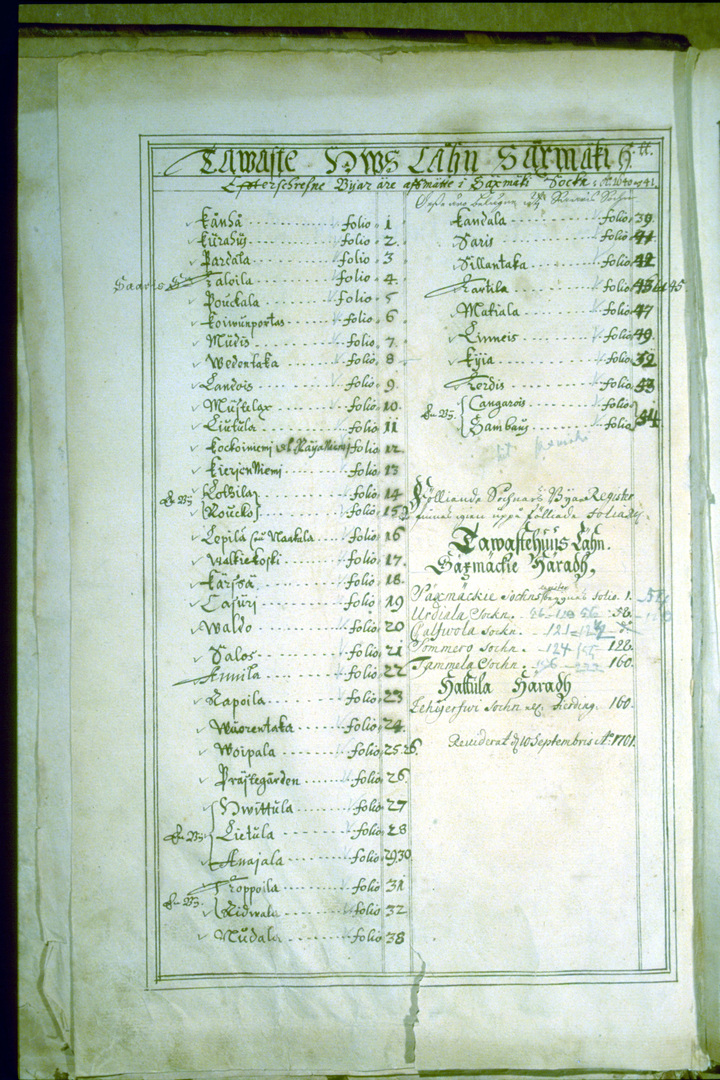 Tawaste Hws Lähn Säxmäki H.tt.
Effterschrefne Byiar äre affmätte i Säxmäki Sockn A:o 1640 och 41.
Känsä folio 1
Kürasüs folio 2
Pardala folio 3
Saaris Taloila folio 4
Pouckala folio 5
Koiwunportas folio 6
Mudis folio 7
Wedentaka folio 8
Landois folio 9
Mustelax folio 10
Liutula folio 11
Kockoiniemj folio 12
KiersenNiemj folio 13
En By Lotsila folio 14
Roucko folio 15
Lepilä folio 16
Walkiekoski folio 17
Kärssä folio 18
Casuri folio 19
Waldo folio 20
Salos folio 21
Annila folio 22
Rapoila folio 23
Wuorentaka folio 24
Woipala folio 25 26
Prästegården folio 26
Hwittula folio 27
En By Lietula folio 28
Anajala folio 29 30
Troppoila folio 31
En By Ridwala folio 32
Nudala folio 38
Kandala folio 39
Saris folio 41
Sillantaka folio 42
Tarttila folio 43
Matiala folio 47
Linneis folio 49
Kyia folio 52
Tordis folio 53
En By Cangarois folio
Sambaus folio 54
Fölliande Sochnars Byiar Register
finnas igien uppå föliande Foliadt.
Tawastehuus Lähn.
Säxmäckie Häradh,
Säxmäckie Sockns folio 1.
Urdiala Sockn. 58
Calfwola Sockn. 121
Sommero Sockn. 124 128
Tammela Sockn. 160.
Hattula Häradh
Lehijerfwi Sochn 160.
Reviderat d 10 Septembris A:o 1701.